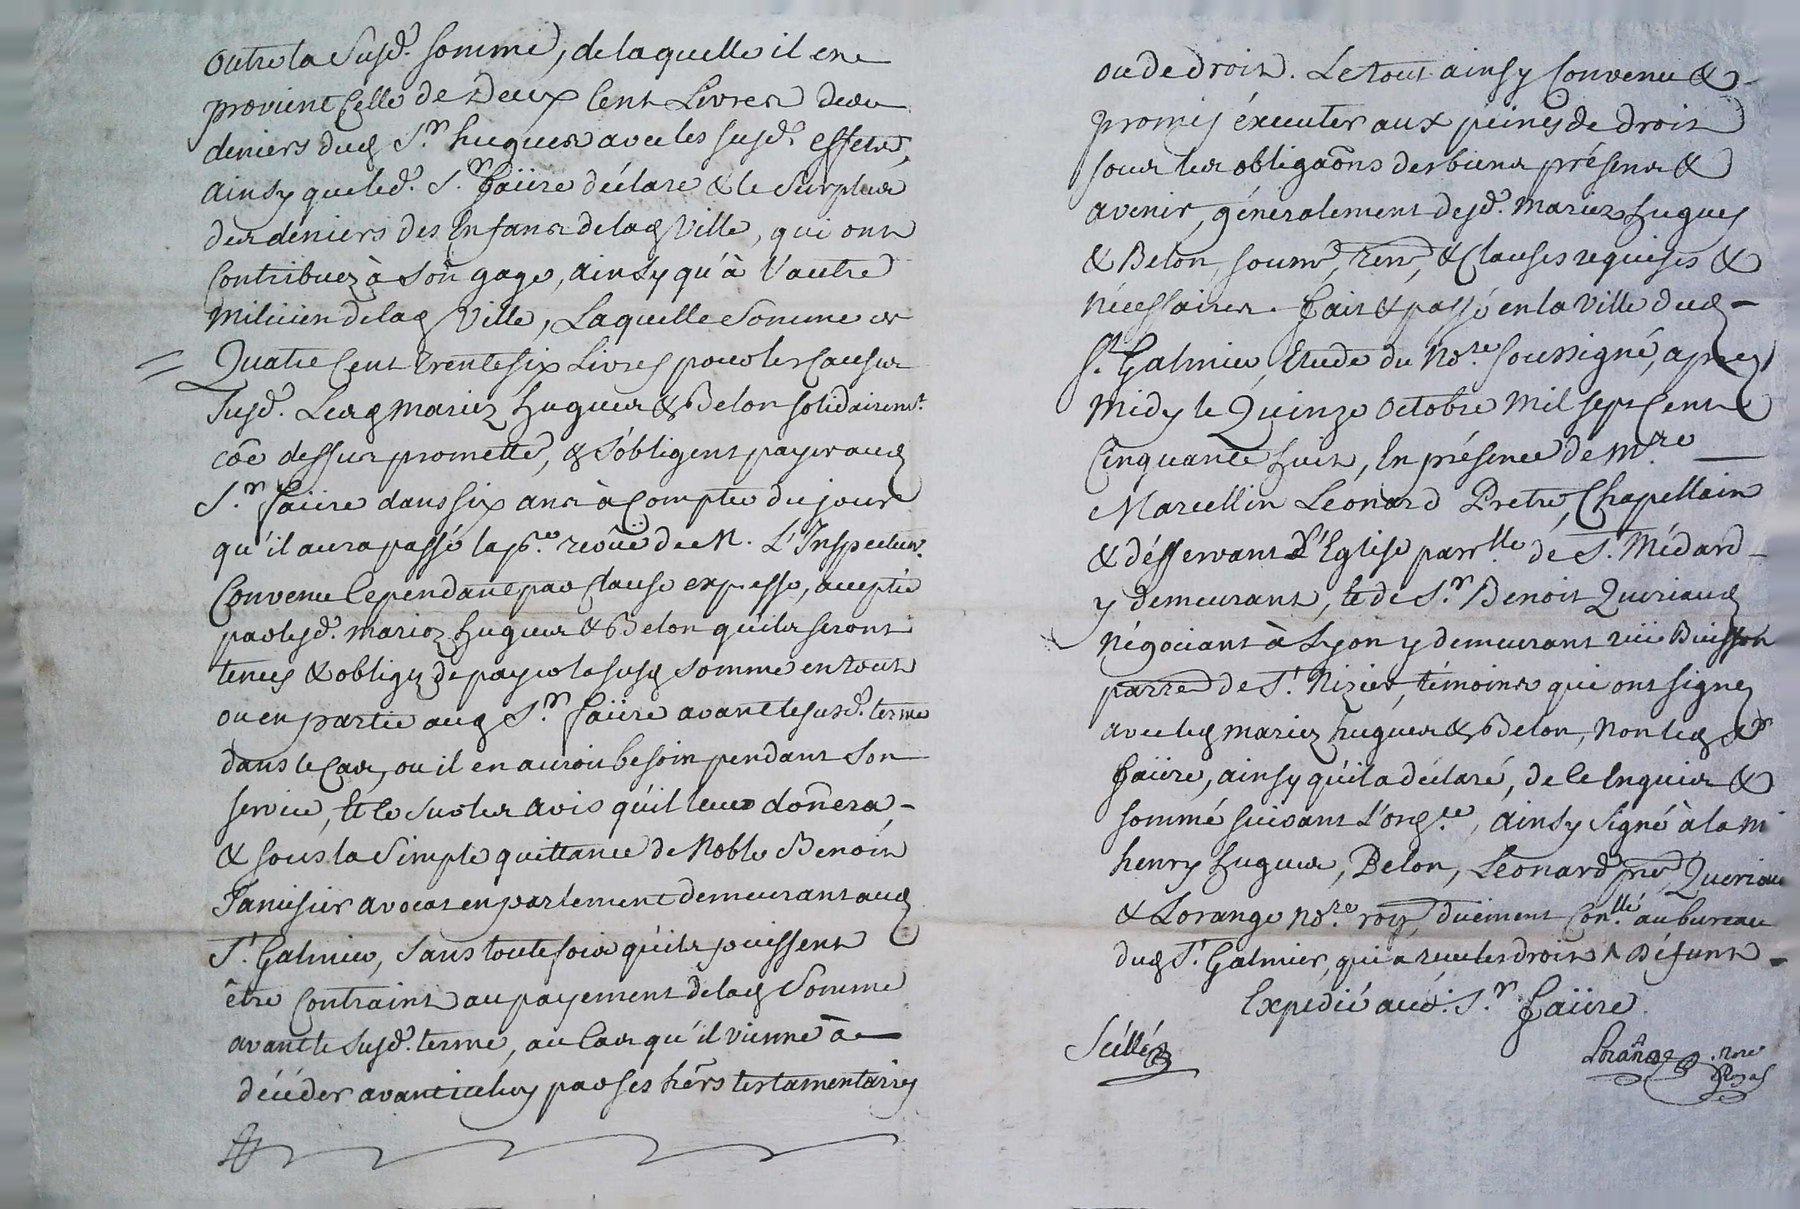 outre la Susd. somme, de laquelle il en
provient Celle de Deux Cent Livres des
deniers dud Sr. hugues avec les susd. effets,
ainsy que led. Sr. faüre déclare & le Surplus
des deniers des Enfans de lad Ville, qui ont
Contribuez à son gage, ainsy qu'à l'autre
Milicien de lad Ville, Laquelle Somme de
Quatre Cent trente six Livres pour les Causes
susd. Lesd mariez hugues & Belon solidairemt.
cõe dessus promette, & s'obligent payer aud
Sr. faüre dans six ans à Compter du jour
qu'il aura passé la pre. revüe de M. L'Inspecteur.
Convenu Cependant par Clause expresse, acceptée
par lesd. mariez hugues & Belon qu'ils seront
tenus & obligez de payer la susd somme en tout
ou en partie aud Sr. faüre avant le susd. terme
dans le Cas, ou il en auroit besoin pendant Son
service, et ce sur les avis qu'il leur doñera,
& sous la simple quittance de Noble Benoit
avocat en parlement demeurant aud
St. Galmier, sans toutefois qu'ils puissent
être Contraint au payement de lad Somme
avant le susd. terme, au Cas qu'il vienne à
décéder avant iceluy par ses hers testamentaires
ou de droit. Le tout ainsy Convenu &
promis éxecuter aux peines de droit
sous les obligaõns des biens présens &
avenir, géneralement desd. Mariez hugues
& Belon, soumn, ren, & Clauses requises &
nécessaires. fait & passé en la Ville dud
St. Galmier, Etude du Nore. soussigné, apres
Midy le Quinze octobre Mil sept Cent
Cinquante huit, En présence de Mre
Marcellin Léonard Pretre, Chapellain
& désservant d'l'Eglise parrlle de St. Médard
y demeurant, et de Sr. Benoit Queriaud
Négociant à Lyon y demeurant rüe Buisson
parre de St. Nizier, témoins qui ont signez
avec lesd mariez hugues & Belon, Non led Sr
faüre, ainsy qu'il a déclaré, de ce Enquis &
sommé suivant L'ordce, ainsy signé à la m
henry hugues, Belon, Léonard pre, Queriau
& Lorange nore. roy, duëment Conllé au bureau
dud St. Galmier, qui a receu les droits Défunt
Expedié aud. Sr. faüre.
Scéllé
Lorange nore
Royal